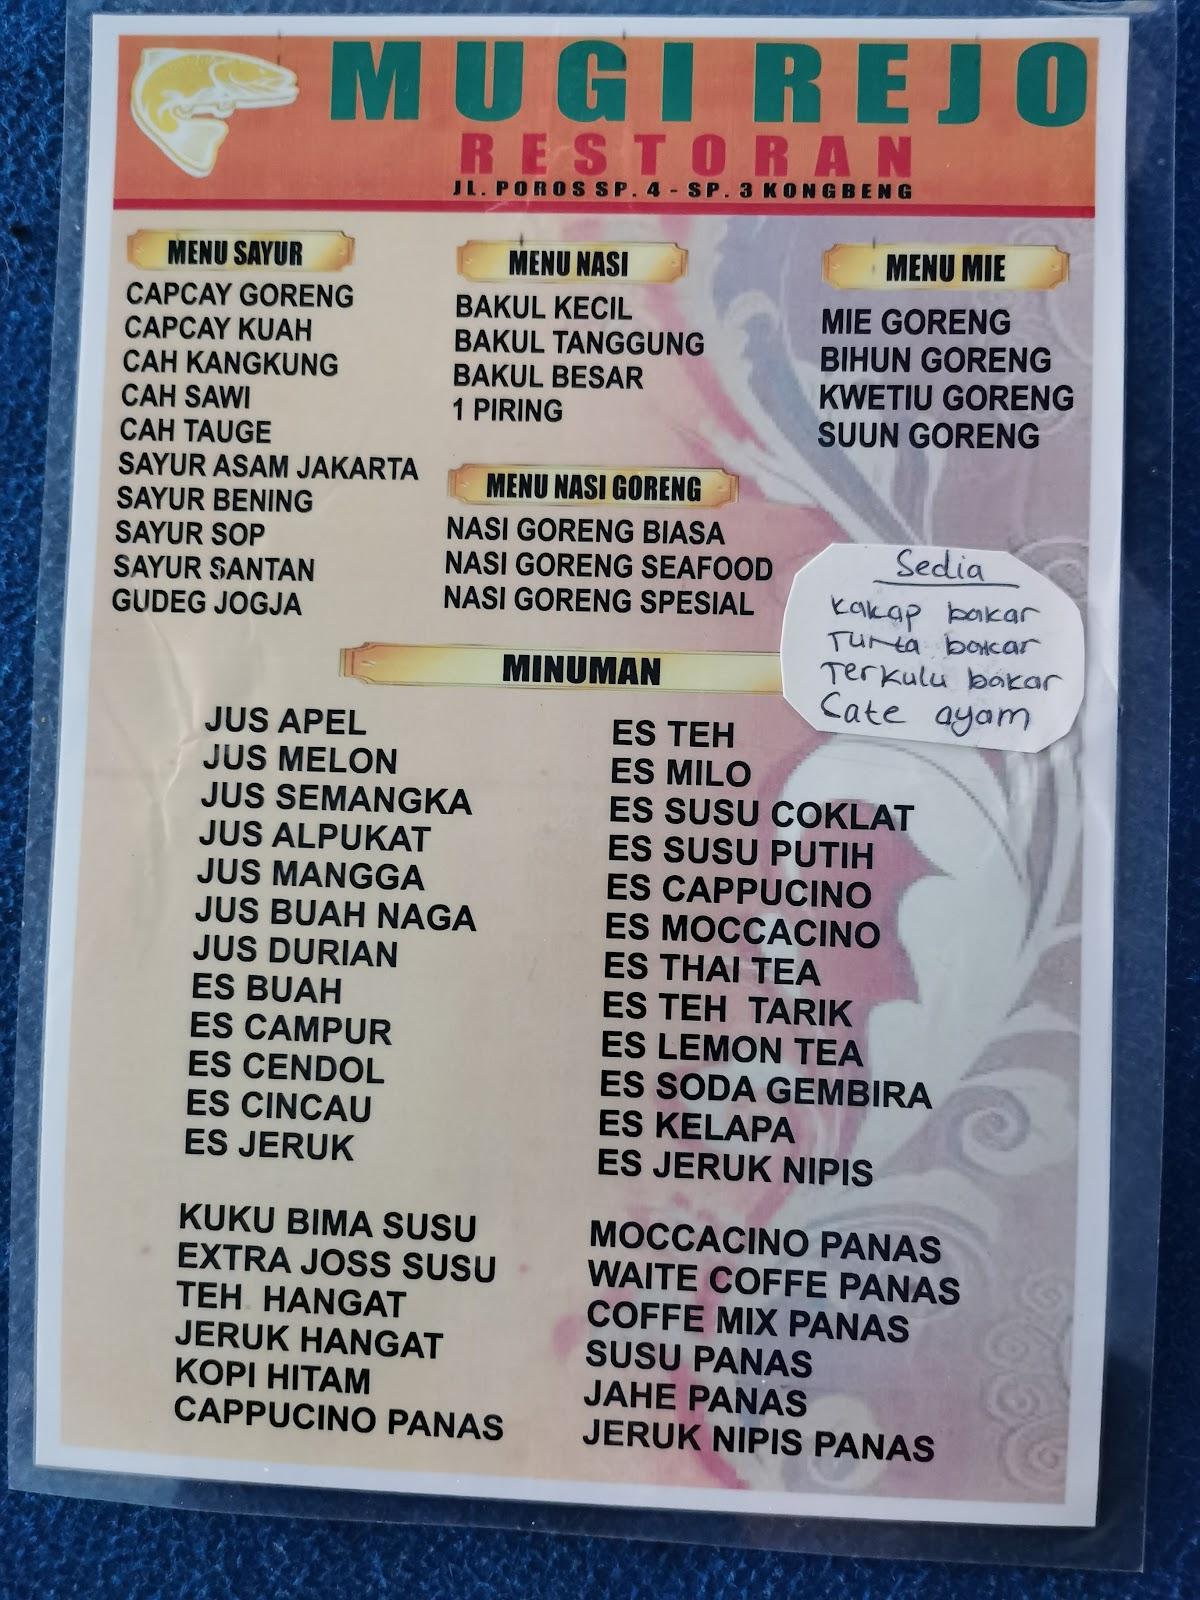 MUGI REJO
RESTORAN
JL. POROS SP. 4 - SP. 3 KONGBENG
MENU SAYUR
CAPCAY GORENG
CAPCAY KUAH
CAH KANGKUNG
CAH SAWI
CAH TAUGE
SAYUR ASAM JAKARTA
SAYUR BENING
SAYUR SOP
SAYUR SANTAN
GUDEG JOGJA
MENU NASI
BAKUL KECIL
BAKUL TANGGUNG
BAKUL BESAR
1 PIRING
MENU NASI GORENG
NASI GORENG BIASA
NASI GORENG SEAFOOD
NASI GORENG SPESIAL
MENU MIE
MIE GORENG
BIHUN GORENG
KWETIU GORENG
SUUN GORENG
Sedia
kakap bakar
Tuna bakar
Terkulu bakar
Sate ayam
MINUMAN
JUS APEL
JUS MELON
JUS SEMANGKA
JUS ALPUKAT
JUS MANGGA
JUS BUAH NAGA
JUS DURIAN
ES BUAH
ES CAMPUR
ES CENDOL
ES CINCAU
ES JERUK
ES TEH
ES MILO
ES SUSU COKLAT
ES SUSU PUTIH
ES CAPPUCINO
ES MOCCACINO
ES THAI TEA
ES TEH TARIK
ES LEMON TEA
ES SODA GEMBIRA
ES KELAPA
ES JERUK NIPIS
KUKU BIMA SUSU
EXTRA JOSS SUSU
TEH HANGAT
JERUK HANGAT
KOPI HITAM
CAPPUCINO PANAS
MOCCACINO PANAS
WAITE COFFE PANAS
COFFE MIX PANAS
SUSU PANAS
JAHE PANAS
JERUK NIPIS PANAS